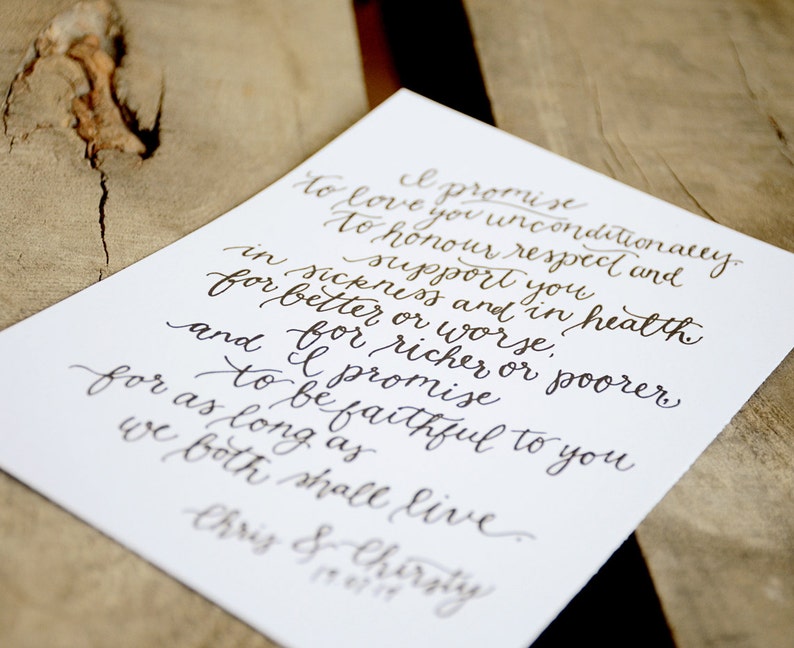 I promise
to love you unconditionally.
to honour respect and
support you
in sickness and in health.
for better or worse,
for richer or poorer,
and I promise
to be faithful to you
for as long as
we both shall live.
Chris & Chirsty
19.07.14